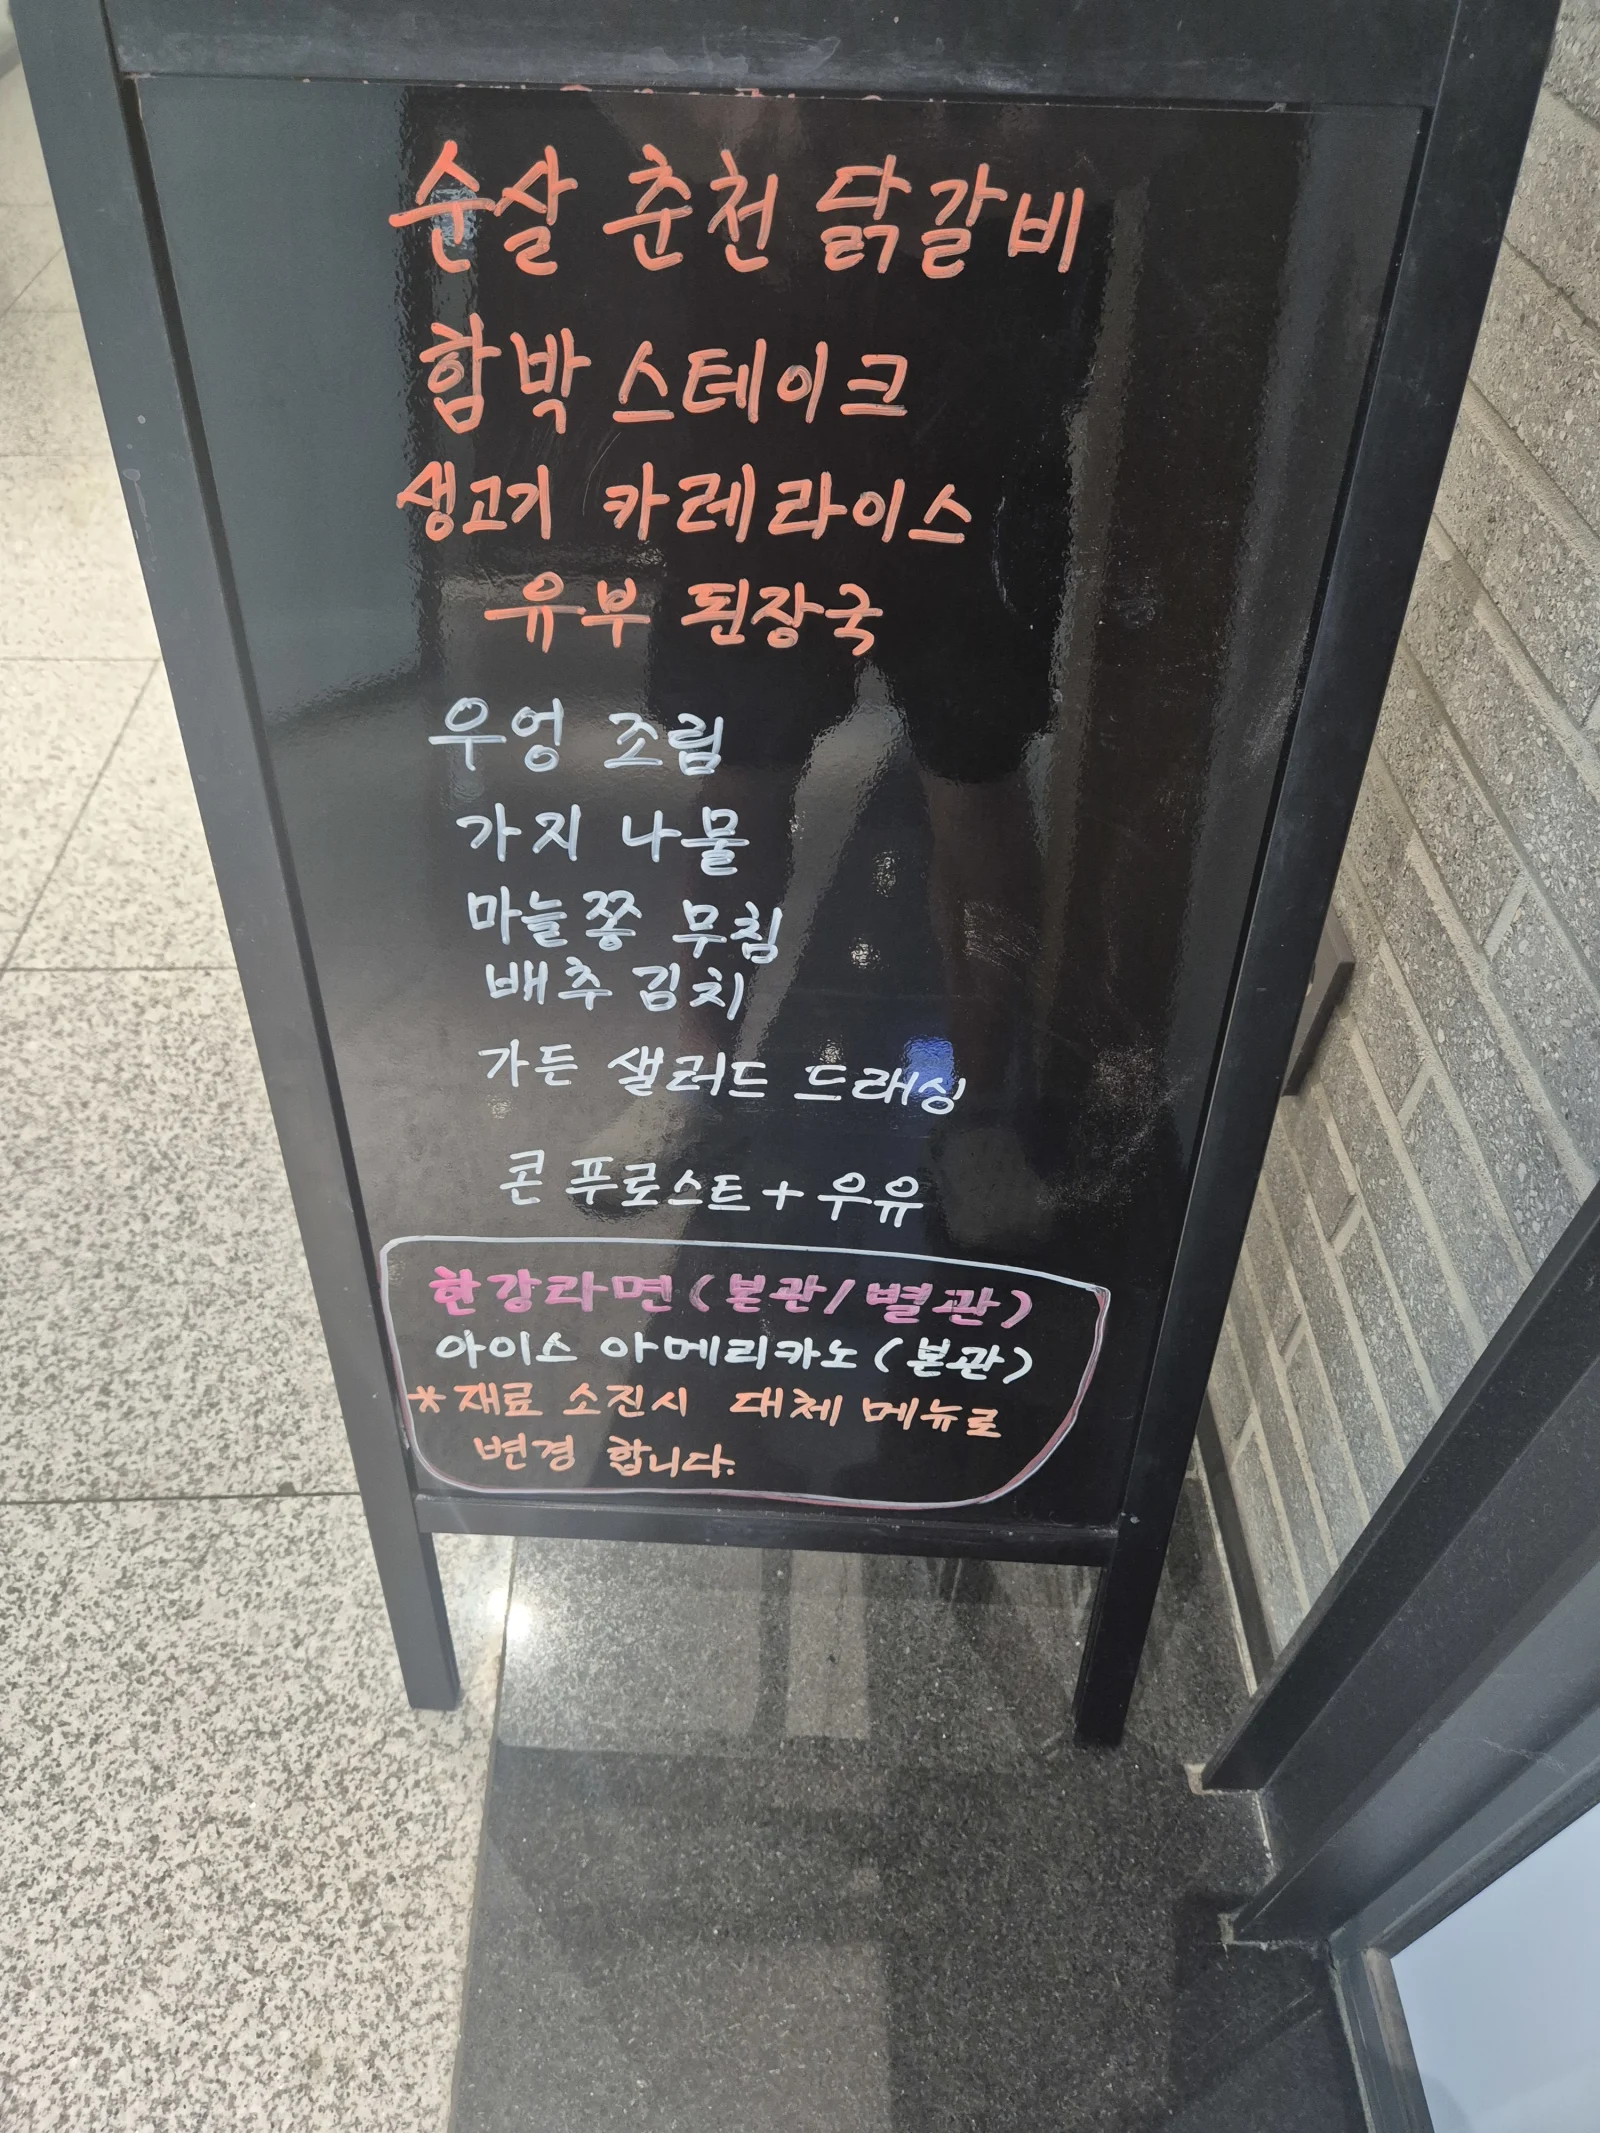 순살 춘천 닭갈비
함박 스테이크
생고기 카레라이스
유부 된장국
우엉 조림
가지 나물
마늘쫑 무침
배추 김치
가든 샐러드 드래싱
콘 푸로스트 + 우유
한강라면 (본관/별관)
아이스 아메리카노 (본관)
* 재료 소진시 대체 메뉴로
변경 합니다.